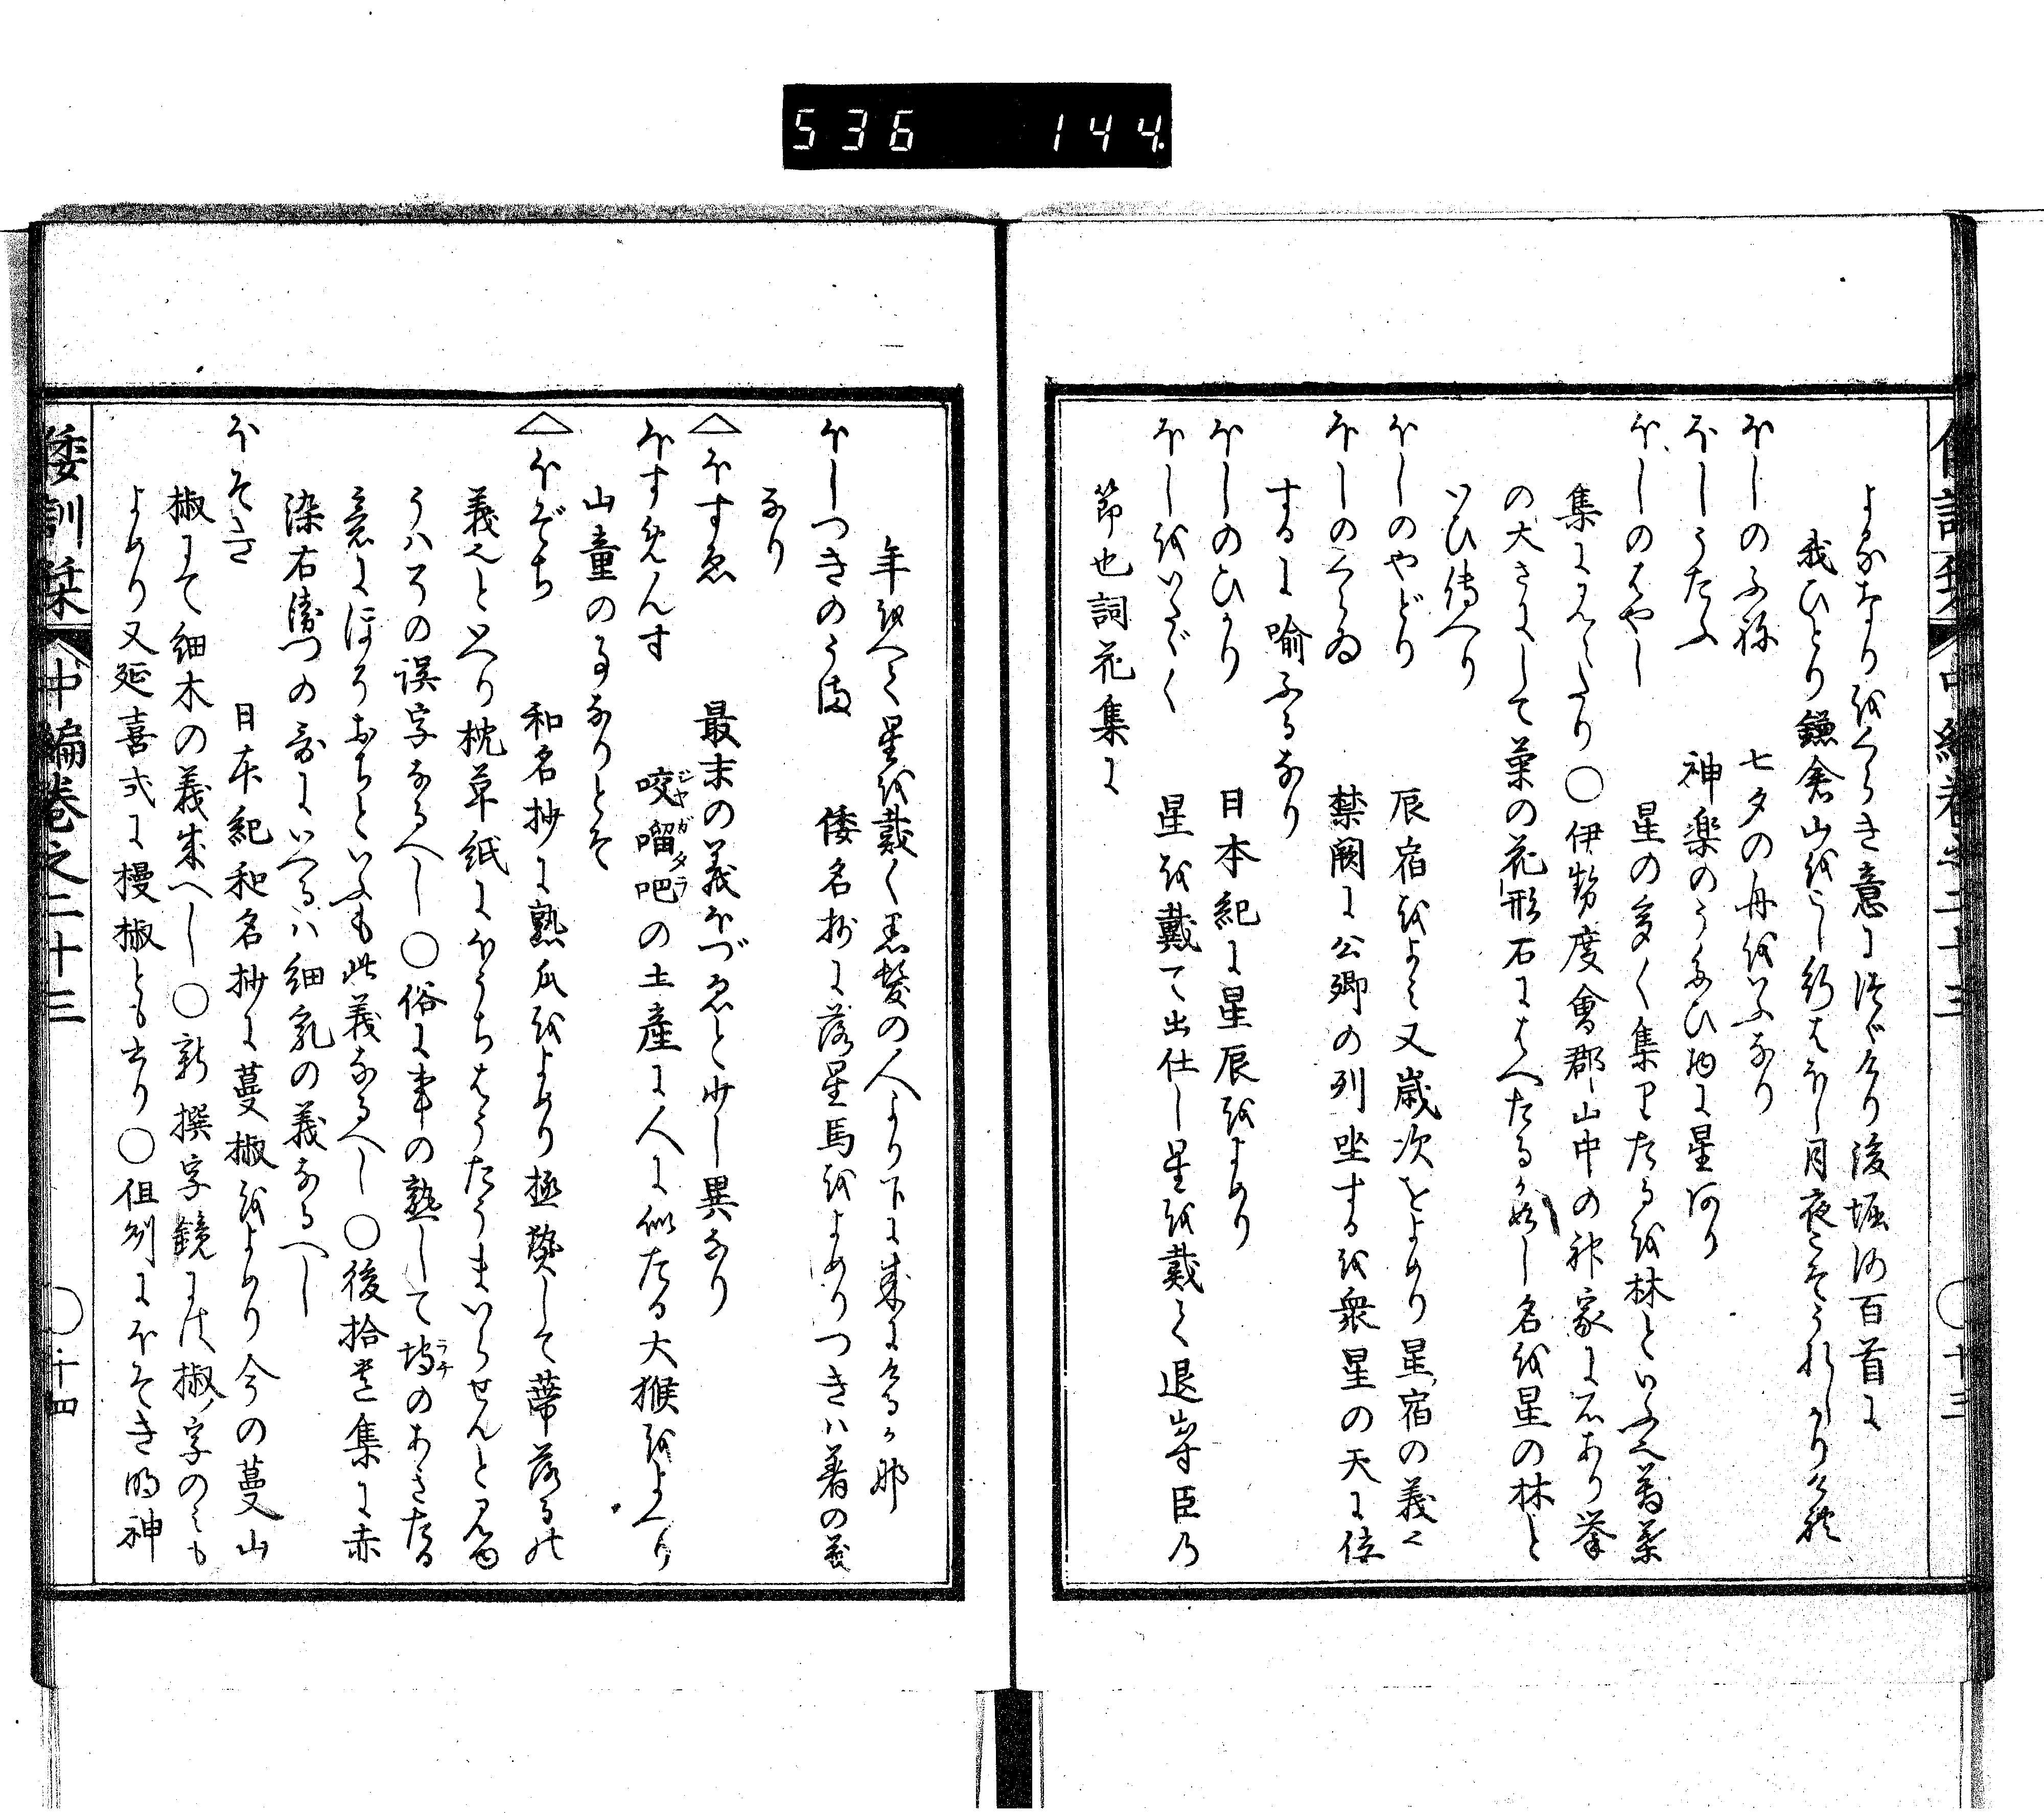 536 144
よるなりをくらき意にいへり後堀河百首に
我ひとり鎌倉山をこし行はほし月夜こそうれしかりけれ
ほしのふね 七夕の舟をいふなり
ほしうたふ 神楽のうたひ物に星あり
ほしのはやし 星の多く集りたるを林といふ也萬葉
集にみえたり○伊勢度會郡山中の神家に石あり拳
の大さにして菊の花形石にはへたるか如し名を星の林と
いひ傳へり
ほしのやどり 辰宿をよみ又歳次をよめり星宿の義也
ほしのくらゐ 禁闕に公卿の列坐するを衆星の天に位
するに喩ふるなり
ほしのひかり 日本紀に星辰をよめり
ほしをいたゞく 星を戴て出仕し星を戴て退守臣乃
節也詞花集に
年をへて星を戴く黒髪の人より下に来にけるか那
ほしつきのうま 倭名抄に落星馬をよめりつきハ著の義
なり
△ほすゑ 最末の義ほづゑと少し異なり
ほすめんす 咬𠺕吧ジヤガタラの土産に人に似たる大猴をよへり
山童の事なりとそ
△ほぞち 和名抄に熟瓜をよめり極熟して蔕落るの
義也といへり枕草紙にほうちはうたうまいらせんとみゆ
うハその誤字なるへし○俗に事の熟して埒ラチのあきたる
意にほそおちといふも此義なるへし○後拾遺集に赤
染右衛門の哥にいへるハ細乳の義なるへし
ほそき 日本紀和名抄に蔓椒をよめり今の蔓山
椒にて細木の義成へし○新撰字鏡には椒字のミも
よめり又延喜式に榠椒とも書り○伹馬にほそき明神
倭訓栞 中編巻之二十三 ○十四